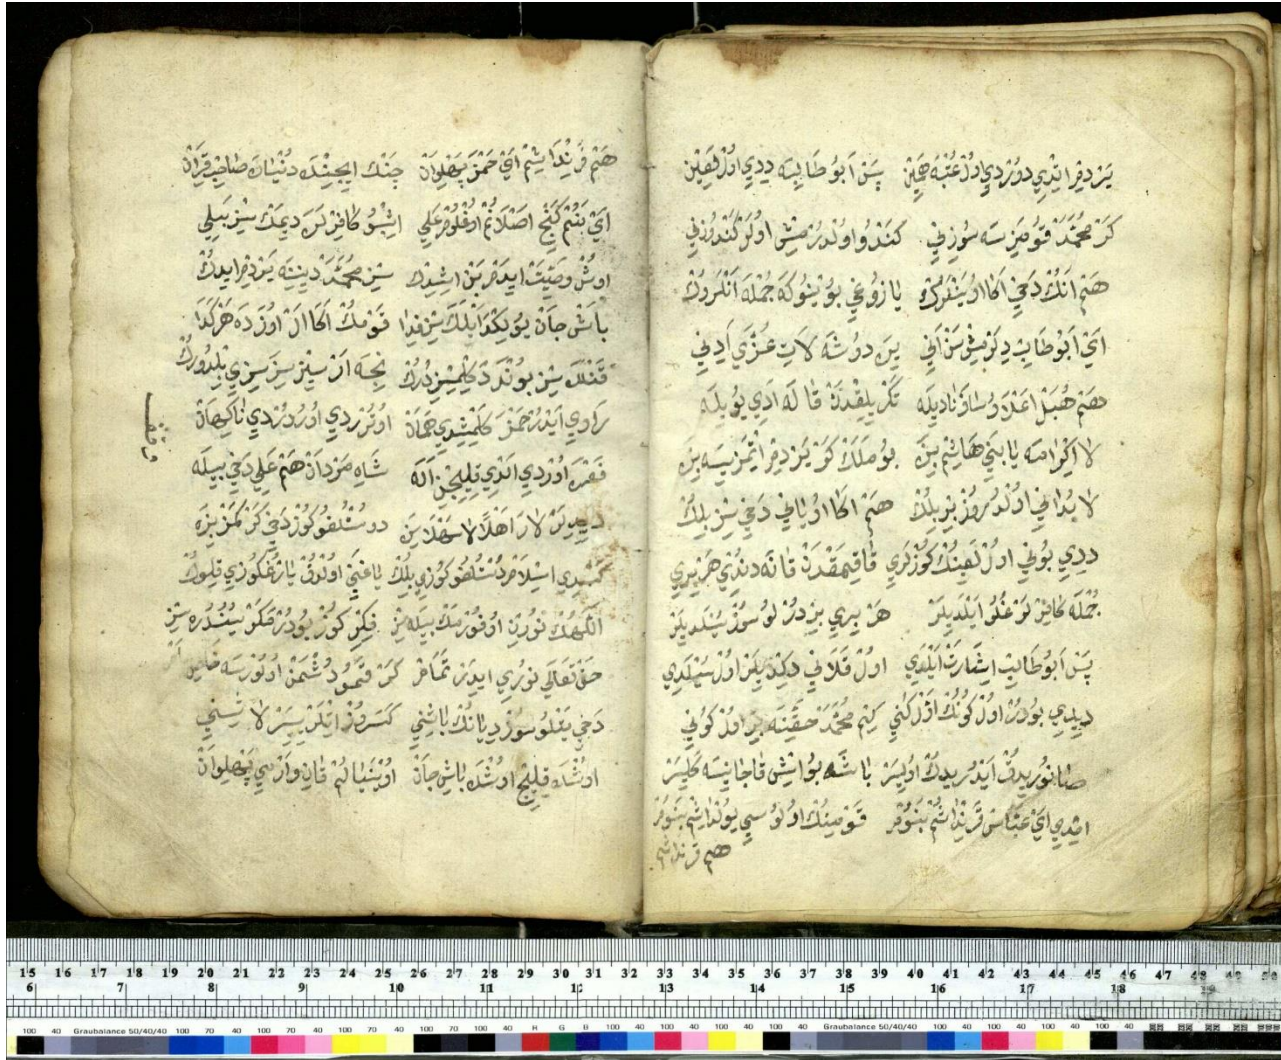 يردم اتدي دوردي اول عتبه همين پس ابو طالبه ددي اول لعين
كر محمد قومزسه سوزني كندو اولدرمش اولر كندوزني
هم انك دخي اكا اويندرك يازوغي بوينوكه جمله انلروك
اي ابو طالب دلرمش سن اني يره دوشه لات عزي ادني
هم هبل اعلا و سا و نا ديله تكر يلقدن قاله ادي يويله
لا اكرامه يا بني هاشم بزه بو ملك كر يردم اتمزسه بزه
لا بد اني اولدررز بز بلك هم اكا اوياني دخي سز بلك
ددي بوني اول لعينك كوزلري قاقيمقدن قانه دندي هر بيري
جمله كافرلر غلو ايلديلر هر بيري بر درلو سوز سيلديلر
پس ابو طالب اشارت ايلدي اول قلاني دكلديلر اول سيلدي
ديدي بودر اول كونك اول كني كيم محمد حقينه بر اول كوني
صانوريدق ايدريدك اوليسر باشه بو ايش قاجانيسه كليسر
امدي اي عباس قرنداشم بنوم قومينك اولوسي يولداشم بنوم
هم قرنداشم
هم قرنداشم اي حمزه پهلوان جنك ايچنده دنياده صاحب قران
اي بنم كنج اصلانم اوغلوم علي اشبو كافرلره ديمك سز بلي
اوش وصيت ايدرم بن اشدك سز محمد دينته يردم ايدك
باش جان يولكدا ايلك سز فدا قومك اكا ار اوزده هركدا
قنلك سز بوندده كلمشز درك نجه ار سيز سز سزي بلدورك
راوي ايدر حمزه كلمشدي همان اوتردي اورردي ناكهان
نعره اوردي الدي قليجن اله شاه مردان هم علي دخي بيله
ديديلر لا اهلا لا سهلا سزه دوشلغو كوز دخي كركمز بزه
كتدي اسلام دشلغو كوزي بلك ياغي اولدق يازغكوزي قلوك
اللهك نورن اوفورمك بيله سز فكركوز بودر مكر سيندره سز
حق تعالي نوري ايدر تمام كر قمو دشمن اولورسه خاص
دخي يغلو سوز ديانك باشني كسروز ايتلره ييرز لاشني
اوشده قليج اوشده باش جان اوينيالم قان وارسي پهلوان